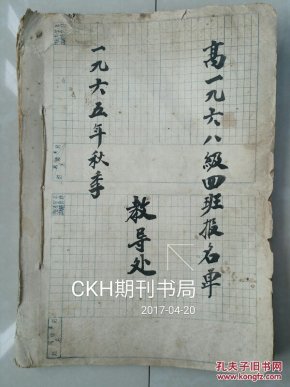 高一九六八級四班报名单
一九六五年秋季
教导处
CKH期刊书局
2017-04-20
孔夫子旧书网